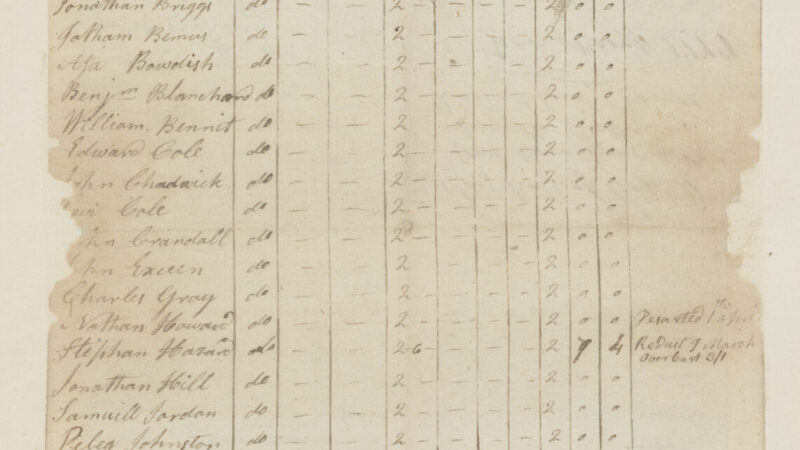 Jonathan Briggs do — — 2 — — — — 2 0 0
Jotham Bemus do — — 2 — — — — 2 0 0
Asa Bowdish do — — 2 — — — — 2 0 0
Benjm Blanchard do — — 2 — — — — 2 0 0
William Bennit do — — 2 — — — — 2 0 0
Edward Cole do — — 2 — — — — 2 0 0
hn Chadwick do — — 2 — — — — 2 0 0
Cole do — — 2 — — — — 2 0 0
hn Crandall do — — 2 — — — — 2 0 0
hn do — — 2 — — — — 2 0 0
Charles Gray do — — 2 — — — — 2 0 0
Nathan Howard do — — 2 — — — — 2 0 0 Desarted 1th
Stephan Hazard do — — 2 6 — — — — 2 7 4 March
Over Cast 3/1
Jonathan Hill do — — 2 — — — — 2 0 0
Samuill Jordon do — — 2 — — — — 2 0 0
Peleg Johnston do — — 2 — — — — 2 0 0